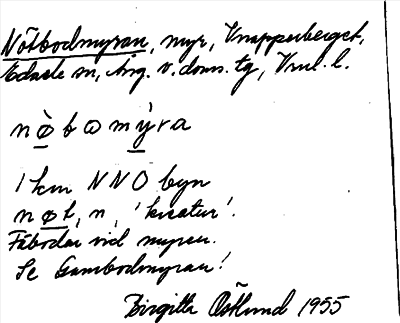 Nötbodmyran, myr, Knapperberget,
Edsele sn, Ång. v. doms. tg, Vnrl. l.
nø̀bωmýra
1 km NNO byn
nøt, n, 'kreatur'.
Fäbodar vid myren.
Se Gambodmyran!
Birgitta Östlund 1955